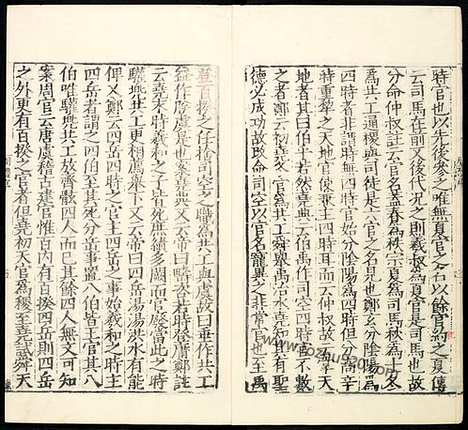 時官也以先後參之唯無夏官之名以餘官約之夏傳
云司馬在前又後代况之則羲叔爲夏官是司馬也故
分命仲叔註云官名蓋春爲秩宗夏爲司馬秋爲士冬
爲共工通稷與司徒是六官之名見也鄭玄分陰陽爲
四時者非謂時無四時官始分陰陽爲四時但分高辛
時重黎之天地官使兼主四時耳而云仲叔故云掌天
地者其曰伯乎若然堯典云伯禹作司空四時官不數
之者鄭云初堯冬官爲共工舜舉禹治水堯知其有聖
德必成功故改命司空以官名寵異之非常官也至禹
登百揆之任捨司空之職爲共工與虞故曰垂作共工
益作朕虞是也案堯典又云帝曰疇咨若時登庸鄭註
云堯末時羲和之子皆死庶績多闕而官廢當此之時
驩兜共工更相薦舉下又云帝曰四岳湯湯洪水有能
俾乂鄭云四岳四時之官主四岳之事始羲和之時主
四岳者謂之四伯至其死分岳事置八伯皆王官其八
伯唯驩兜共工放齊鯀四人而已其餘四人無文可知
案周官云唐虞稽古建官惟百內有百揆四岳則四岳
之外更有百揆之官者但堯初天官爲稷至堯試舜天